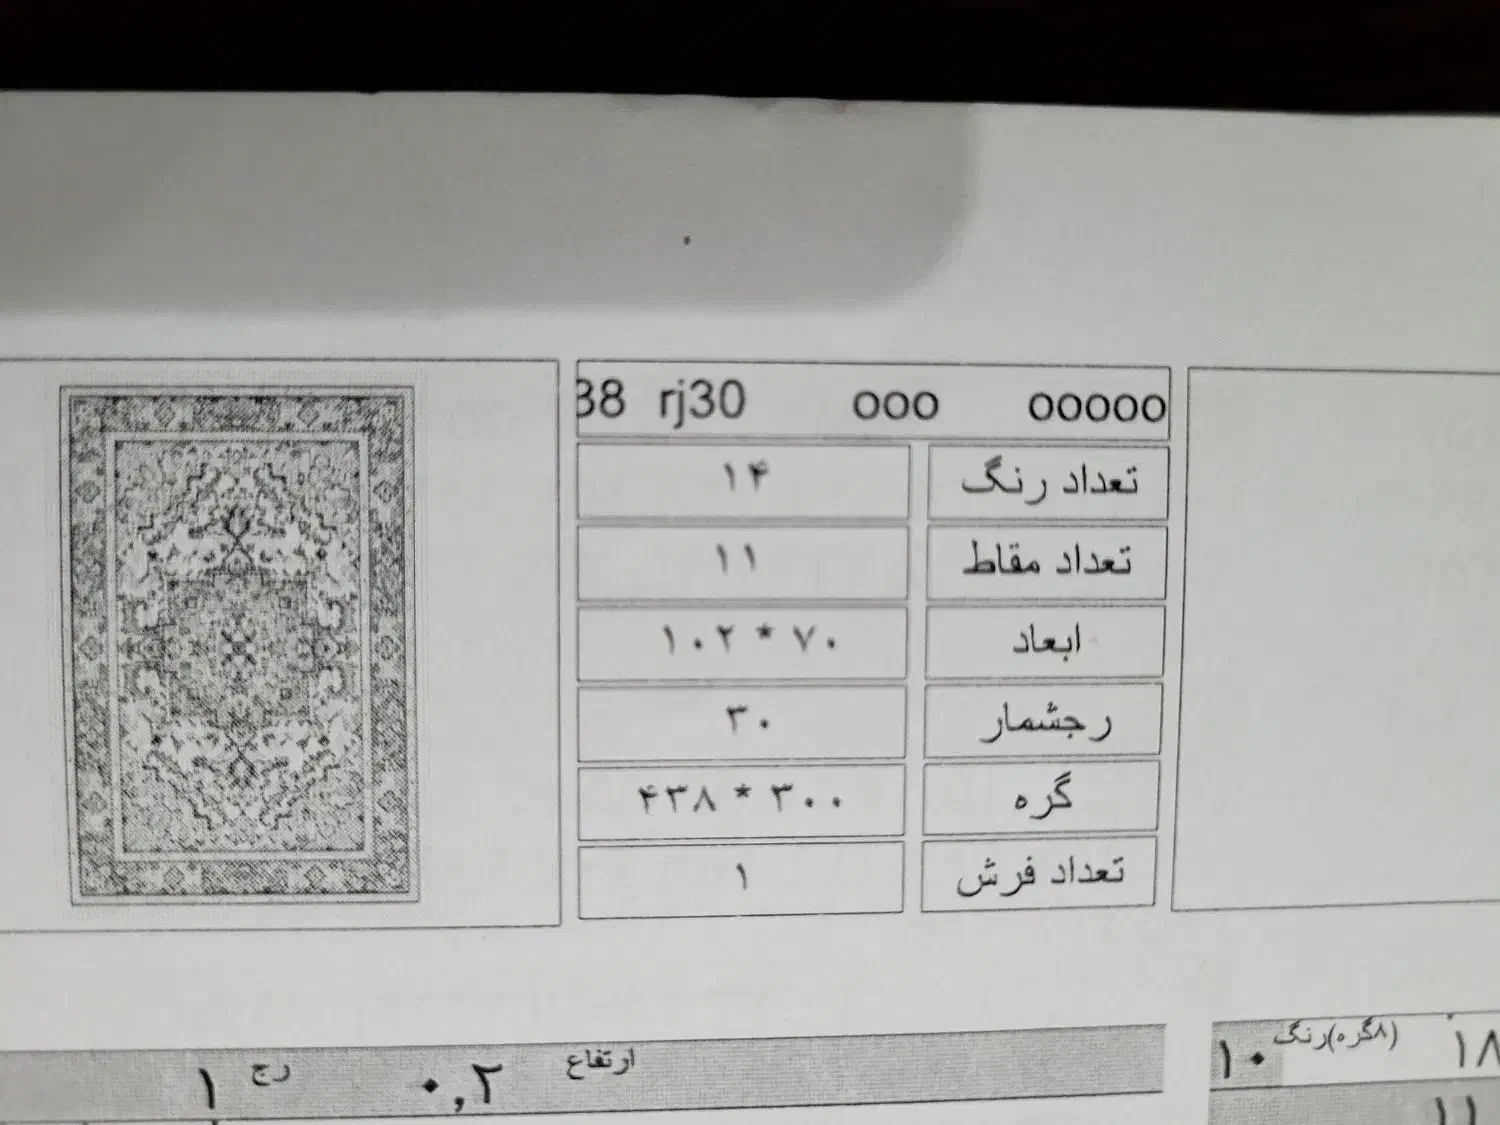 38 rj30 ooo ooooo
تعداد رنگ ۱۴
تعداد مقاط ۱۱
ابعاد ۷۰ * ۱۰۲
رجشمار ۳۰
گره ۳۰۰ * ۴۳۸
تعداد فرش ۱
ارتفاع ۰,۲ رج ۱
۱۸ (۸گره)رنگ ۱۰
۱۱